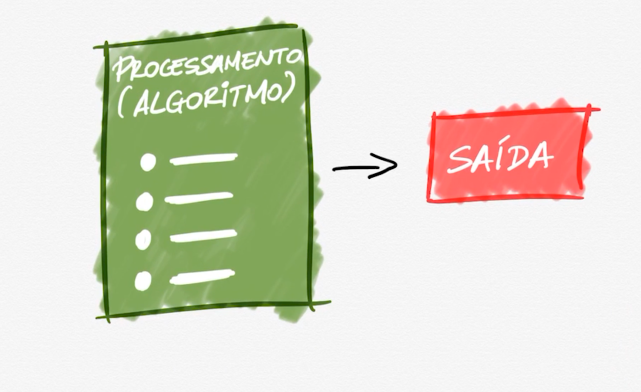 PROCESSAMENTO
(ALGORITMO)
SAÍDA